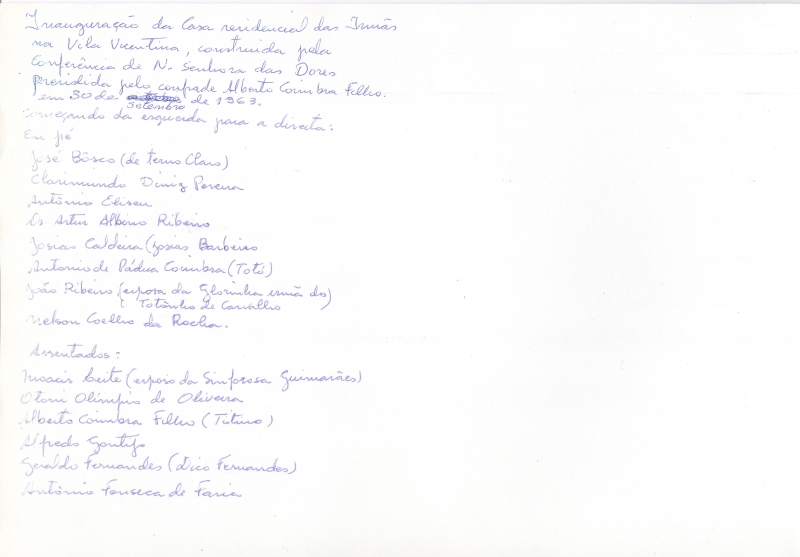 Inauguração da Casa residencial das Irmãs
na Vila Vicentina, construida pela
Conferência de N. Senhora das Dores
presidida pelo confrade Alberto Coimbra Filho.
em 30 de Setembro de 1963.
Começando da esquerda para a direita:
Em pé
José Bôsco (de terno Claro)
Clarimundo Diniz Pereira
Antônio Eliseu
Artur Albino Ribeiro
Josias Caldeira (Josias Barbeiro
Antonio de Pádua Coimbra (Totó)
João Ribeiro (esposo da Glorinha irmã do)
( Totonho de Carvalho
Nelson Coelho da Rocha.
Assentados:
Moacir Leite (esposo da Sinforosa Guimarães)
Otoni Olimpio de Oliveira
Alberto Coimbra Filho (Titino)
Alfredo Gontijo
Geraldo Fernandes (Dico Fernandes)
Antônio Fonseca de Faria